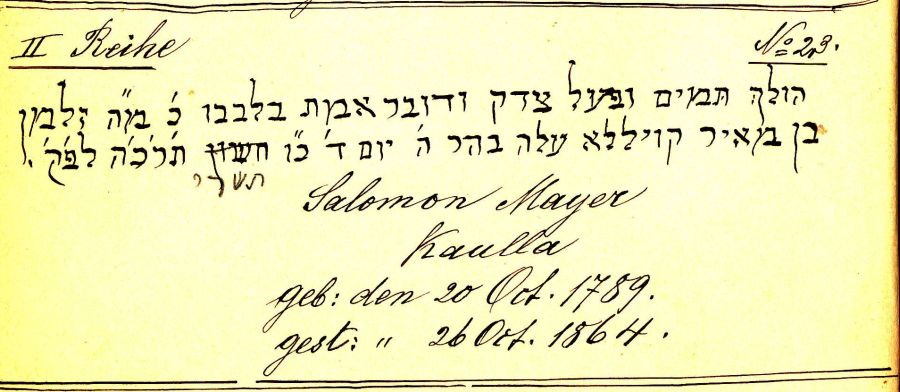 II Reihe
No 23.
הולך תמים ופעל צדק ודובר אמת בלבבו כ׳ מ״ה זלמן
בן מאיר קויללא עלה בהר ה׳ יום ד׳ כ״ו חשון תרכ״ה לפ״ק.
תשרי
Salomon Mayer
Kaulla
geb: den 20 Oct. 1789.
gest: " 26 Oct. 1864.